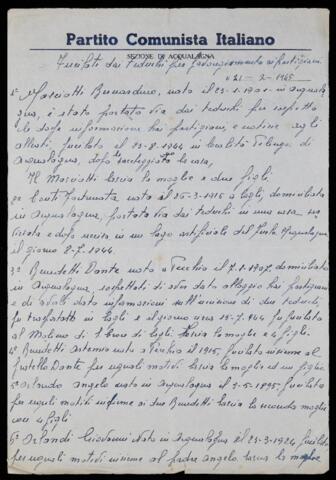 Partito Comunista Italiano
SEZIONE DI ACQUALAGNA
Fucilati dai Tedeschi per favoreggiamento ai partigiani
21-2-1945
1° Marciotti Bernardino, nato il 23-1-1901 in Acquala
gna, è stato portato via dai tedeschi per sospetto
di dare informazione hai partigiani e notizie agli
alleati, fucilato il 23-8-1944 in località
Acqualagna, dopo la casa,
Il Marciotti lascia la moglie e due figli.
2° Conti Fortunata nata il 25-3-1915 a Cagli, domiciliata
in Acqualagna, portata via dai tedeschi in una casa
e dopo uccisa in un lago artificiale del Acqualagna
il giorno 8-7-1944.
3° Benedetti Dante nato a Pecchio il 7-1-1907, domiciliato
in Acqualagna, sospettati di aver dato alloggio hai partigiani
e di avere dato informazioni sull'uccisione di due tedeschi,
fu in Cagli e il giorno 15-7-944 fu fucilato al
Molino di di Cagli lascia la moglie e 4 figli.
4° Benedetti Artemio nato a il 1915, fucilato insieme al
fratello Dante per uguali motivi lascia la moglie ed un figlio
5° Orlando Angelo nato in Acqualagna il 5-5-1895 fucilato
per uguali motivi insieme ai due Benedetti lascia la seconda moglie
con 4 figli.
6° Orlandi Giovanni nato in Acqualagna il 23-3-1924, fucilato
per uguali motivi insieme al padre Angelo lascia la madre